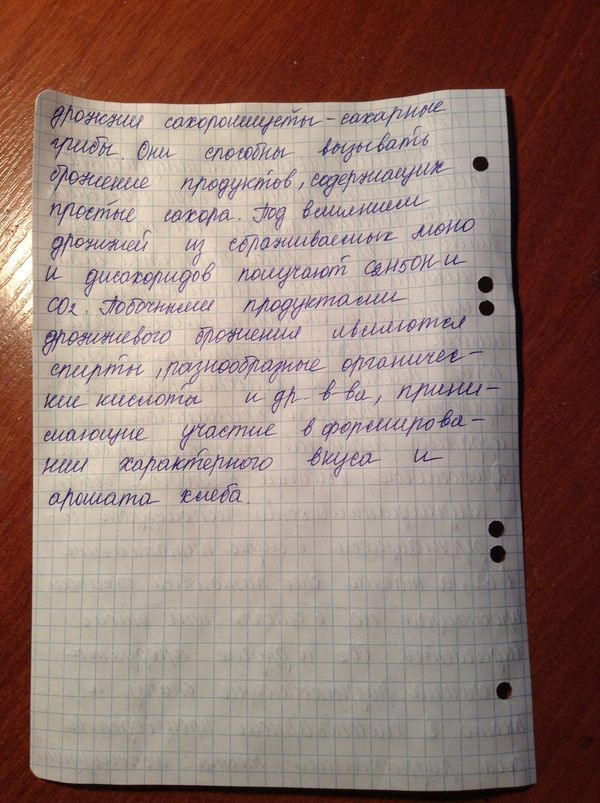 дрожжи сахоромицеты-сахарные
грибы. Они способны вызывать
брожение продуктов, содержащих
простые сахора. Под влиянием
дрожжей из сбраживаемых моно
и дисахоридов получают C2H5OH и
CO2. Побочными продуктами
дрожжевого брожения являются
спирты, разнообразные органичес-
кие кислоты и др в-ва, прини-
мающие участие в формирова-
нии характерного вкуса и
аромата хлеба.